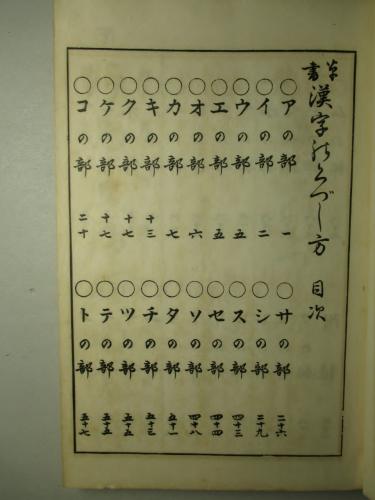 草書 漢字のくづし方 目次
○アの部 一
○イの部 二
○ウの部 五
○エの部 五
○オの部 六
○カの部 七
○キの部 十三
○クの部 十七
○ケの部 十七
○コの部 二十
○サの部 二十六
○シの部 二十九
○スの部 四十三
○セの部 四十四
○ソの部 四十八
○タの部 五十一
○チの部 五十三
○ツの部 五十五
○テの部 五十五
○トの部 五十七